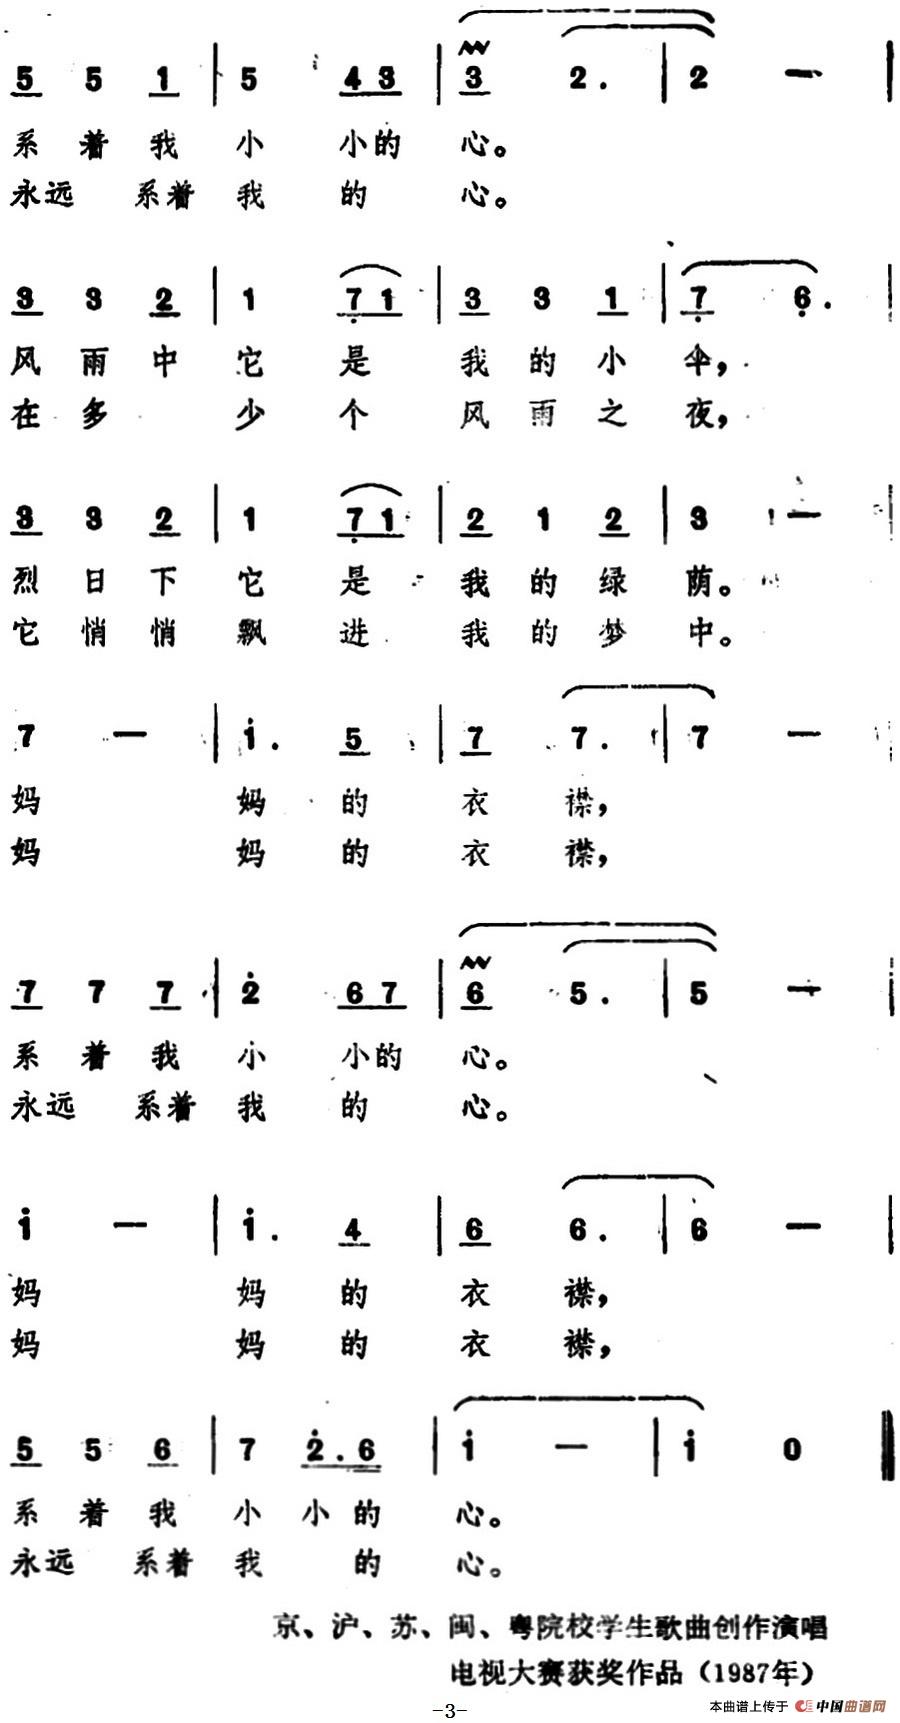 5 5 1 | 5 4 3 | 3 2. | 2 — |
系着我小小的心。
永远系着我的心。
3 3 2 | 1 7 1 | 3 3 1 | 7 6. |
风雨中它是我的小伞，
在多少个风雨之夜，
3 3 2 | 1 7 1 | 2 1 2 | 3 — |
烈日下它是我的绿荫。
它悄悄飘进我的梦中。
7 — | i. 5 | 7 7. | 7 — |
妈妈的衣襟，
妈妈的衣襟，
7 7 7 | 2 6 7 | 6 5. | 5 — |
系着我小小的心。
永远系着我的心。
i — | i. 4 | 6 6. | 6 — |
妈妈的衣襟，
妈妈的衣襟，
5 5 6 | 7 2. 6 | i — | i 0 ‖
系着我小小的心。
永远系着我的心。
京、沪、苏、闽、粤院校学生歌曲创作演唱
电视大赛获奖作品（1987年）
本曲谱上传于 中国曲谱网
-3-